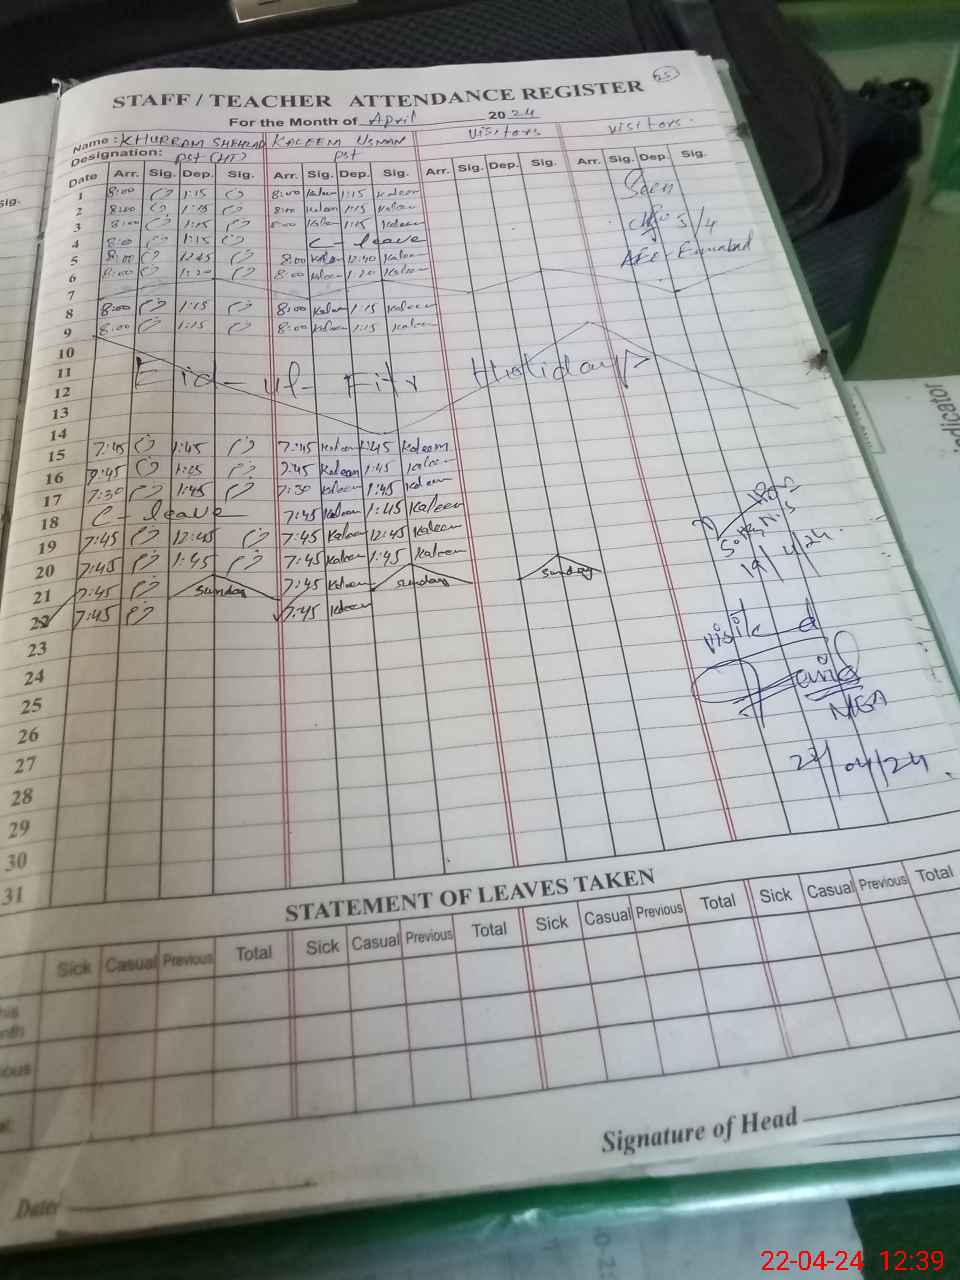 25
STAFF / TEACHER ATTENDANCE REGISTER
For the Month of April 2024
Name : KHURRAM SHEHZAD KALEEM USMAN visitors visitors.
Designation: PST (HT) PST
Date Arr. Sig. Dep. Sig. Arr. Sig. Dep. Sig. Arr. Sig. Dep. Sig. Arr. Sig. Dep. Sig.
1 8:00 1:15 8:00 Kaleem 1:15 Kaleem Seen
2 8:00 1:15 8:00 Kaleem 1:15 Kaleem
3 8:00 1:15 8:00 Kaleem 1:15 Kaleem 5/4
4 8:00 1:15 C-leave
5 8:00 12:45 8:00 Kaleem 12:40 Kaleem
6 8:00 1:20 8:00 Kaleem 1:20 Kaleem
7
8 8:00 1:15 8:00 Kaleem 1:15 Kaleem
9 8:00 1:15 8:00 Kaleem 1:15 Kaleem
10
11 Eid-ul-Fitr Holidays
12
13
14
15 7:45 1:45 7:45 Kaleem 1:45 Kaleem
16 7:45 1:45 7:45 Kaleem 1:45 Kaleem
17 7:30 1:45 7:30 Kaleem 1:45 Kaleem
18 C-leave 7:45 Kaleem 1:45 Kaleem
19 7:45 12:45 7:45 Kaleem 12:45 Kaleem 19/4/24
20 7:45 1:45 7:45 Kaleem 1:45 Kaleem
21 7:45 sunday 7:45 Kaleem sunday sunday
22 7:45 7:45 Kaleem
Visited
23
24
25
MEA
26
27
22/04/24
28
29
30
31
STATEMENT OF LEAVES TAKEN
Sick Casual Previous Total Sick Casual Previous Total Sick Casual Previous Total Sick Casual Previous Total
Signature of Head
Date:
indicator
22-04-24 12:39